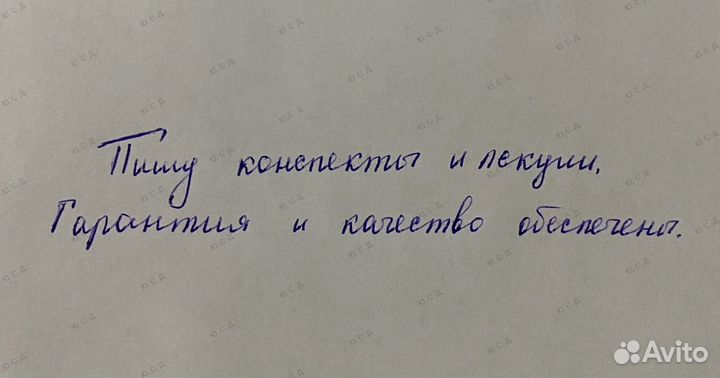 Пишу конспекты и лекции.
Гарантия и качество обеспечены.
Avito